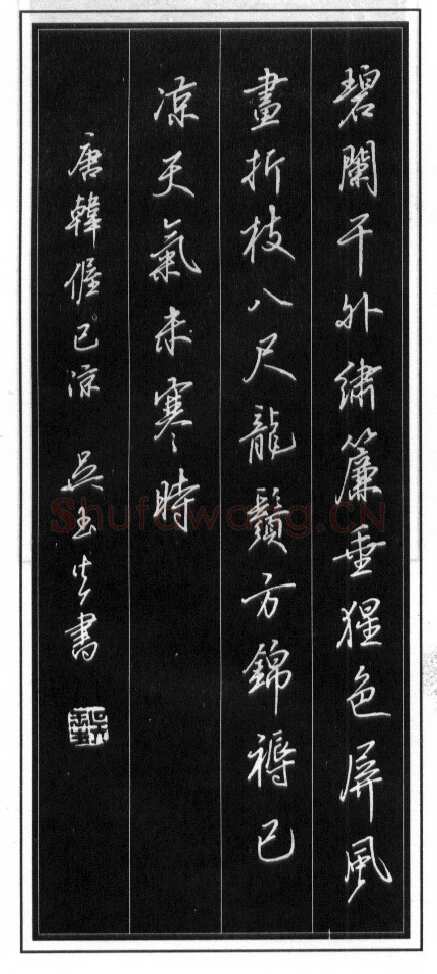 碧闌干外繡簾垂猩色屏風
畫折枝八尺龍鬚方錦褥已
凉天氣未寒時
唐韓偓已凉 吳玉生書
Shufawang.CN